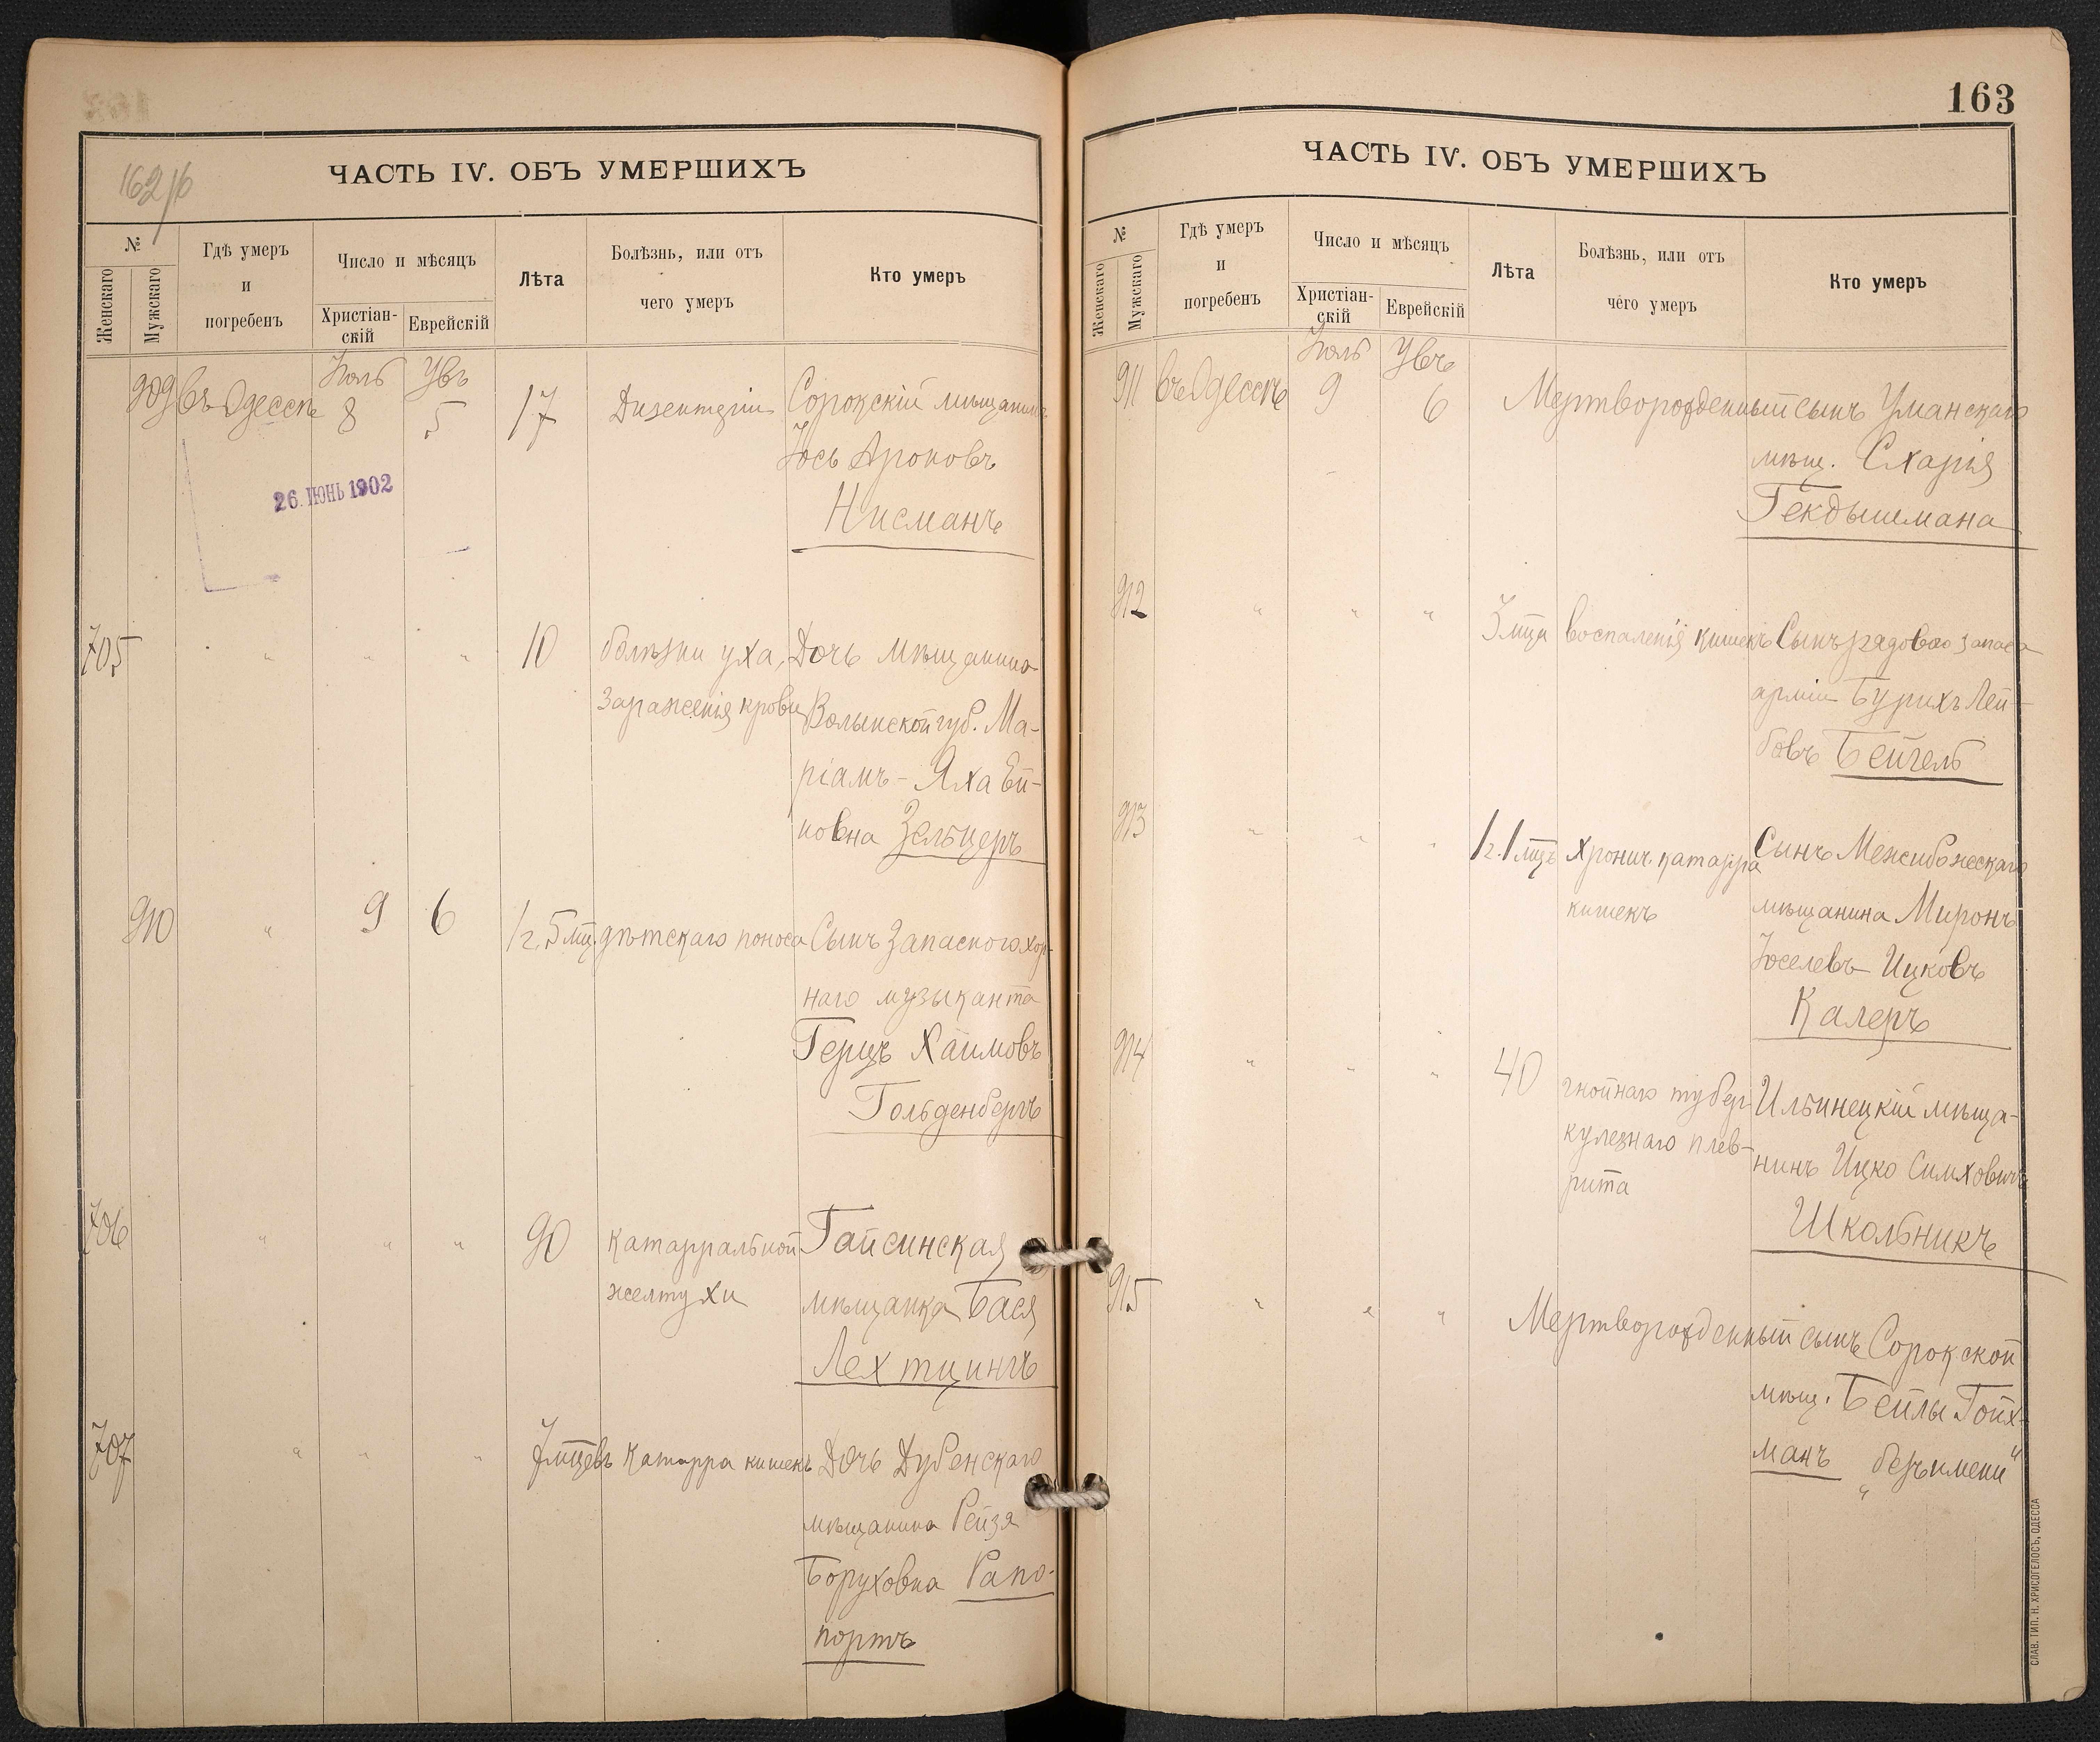 162/б
ЧАСТЬ IV. ОБЪ УМЕРШИХЪ
№
Женскаго
Мужскаго
Гдѣ умеръ
и
погребенъ
Число и мѣсяцъ
Христіан-
скій
Еврейскій
Лѣта
Болѣзнь, или отъ
чего умеръ
Кто умеръ
Іюль
909 въ Одессѣ 8 5 17 Дизентеріи Сорокскій мѣщанинъ
Іось Ароновъ
26. ІЮНЬ 1902
Нисманъ
705 " " " 10 болѣзни уха, Дочь мѣщанина
зараженія крови Волынской губ. Ма-
ріамъ - Яха
новна Зельцеръ
910 " 9 6 1 г. 5 мц. дѣтскаго поноса Сынъ запасного хор-
наго музыканта
Герцъ Хаимовъ
Гольденбергъ
706 " " " 90 катарральной Гайсинская
желтухи мѣщанка Бася
Лехтцингъ
707 " " " 7 мцевъ Катарра кишекъ Дочь Дубенскаго
мѣщанина Рейзя
Боруховна Рапо-
портъ
163
ЧАСТЬ IV. ОБЪ УМЕРШИХЪ
№
Женскаго
Мужскаго
Гдѣ умеръ
и
погребенъ
Число и мѣсяцъ
Христіан-
скій
Еврейскій
Лѣта
Болѣзнь, или отъ
чего умеръ
Кто умеръ
Іюль
911 въ Одессѣ 9 6 Мертворожденный сынъ Уманскаго
мѣщ. Схарія
Гекдышмана
912 " " " 3 мца воспаленія кишекъ Сынъ рядового запаса
арміи Бурихъ Лей-
бовъ Бейгель
913 " " " 1 г. 1 мцъ хронич. катарра Сынъ Межибожескаго
кишекъ мѣщанина Миронъ
Іоселевъ - Ицковъ
Калеръ
914 " " " 40 гнойнаго тубер- Ильинецкій мѣща-
кулезнаго плев- нинъ Ицко Симховичъ
рита
Школьникъ
915 " " " Мертворожденный сынъ Сорокской
мѣщ. Бейлы Гойх-
манъ "безъ имени"
СЛАВ. ТИП. Н. ХРИСОГЕЛОСЪ, ОДЕССА